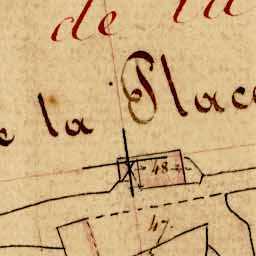 de la
de la Place
48
47.